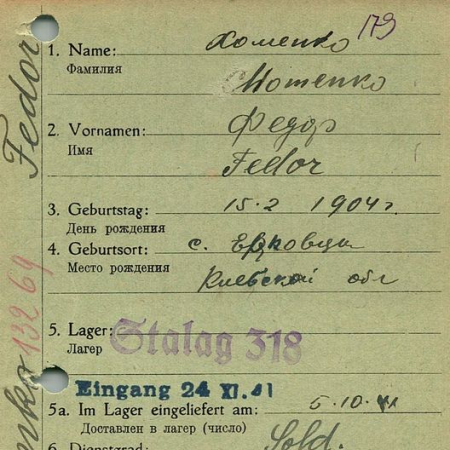 179
1. Name: Хоменко
Фамилия
Chomenko
2. Vornamen: Федор
Имя
Fedor
3. Geburtstag: 15.2 1904 г.
День рождения
4. Geburtsort: с.
Место рождения Киевской обл
5. Lager: Stalag 318
Лагер
Eingang 24 XI. 41
5a. Im Lager eingeliefert am: 5.10.41
Доставлен в лагер (число)
6. Dienstgrad: Sold.
Fedor
13269